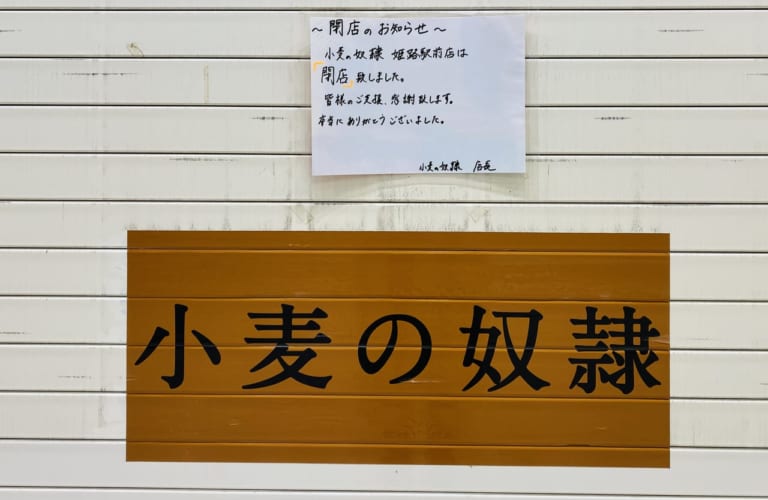 ～閉店のお知らせ～
小麦の奴隷 姫路駅前店は
「閉店」致しました。
皆様のご支援、感謝致します。
本当にありがとうございました。
小麦の奴隷 店長
小麦の奴隷